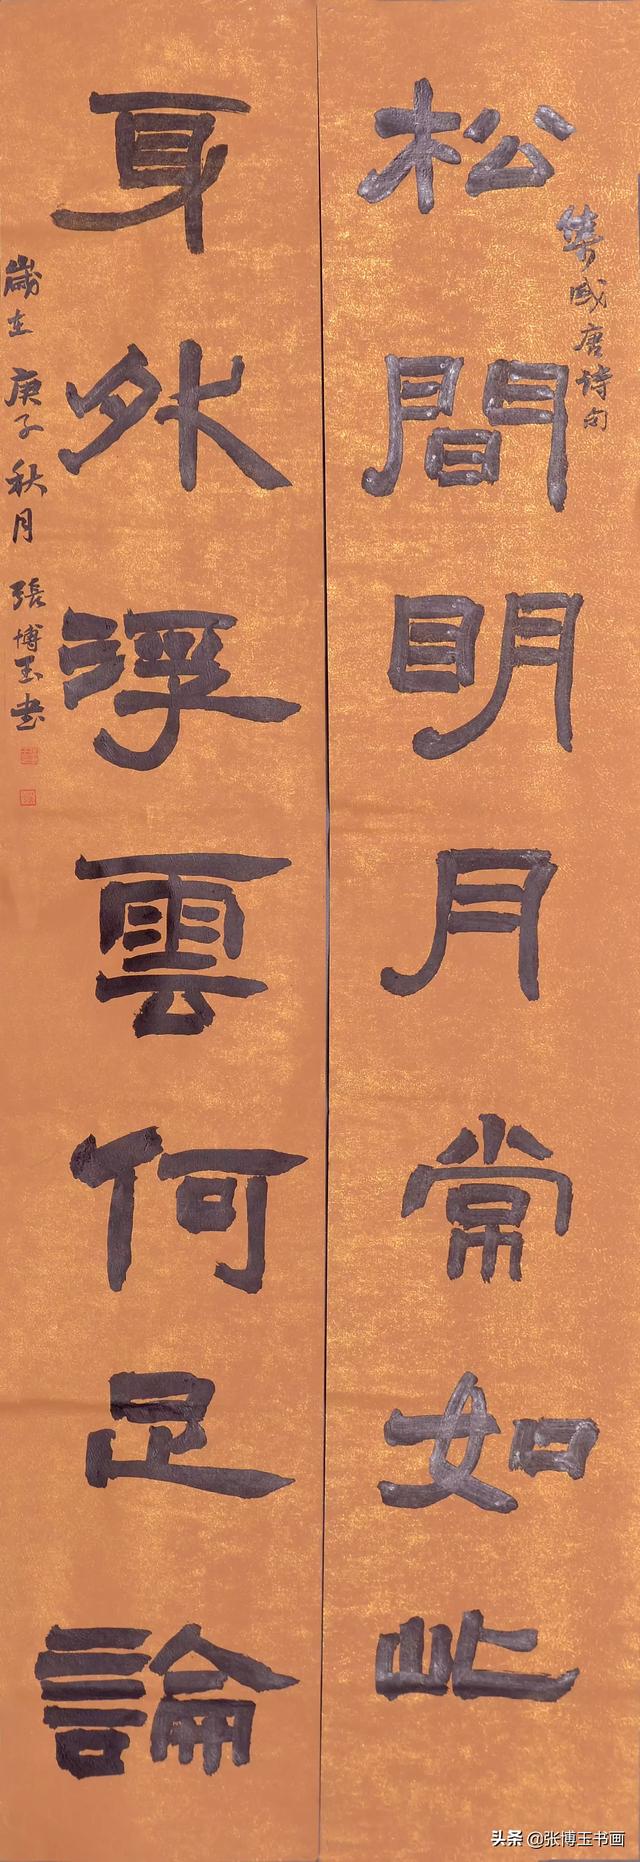 松間明月常如此
集盛唐诗句
身外浮雲何足論
歲在庚子秋月張博玉书
头条 @张博玉书画